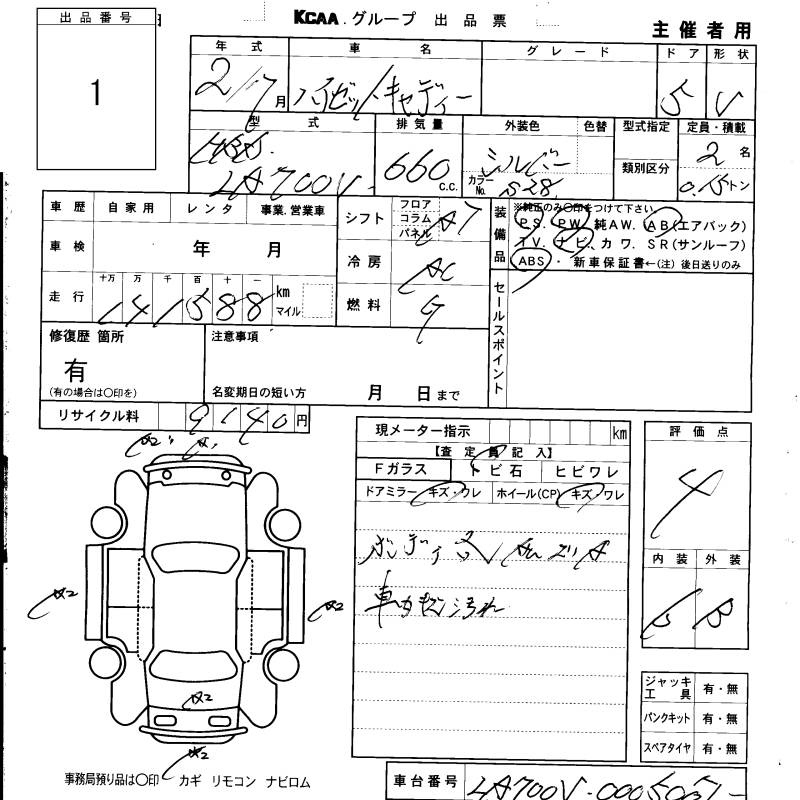 出品番号
1
KCAA.グループ 出品票
主催者用
年式 車名 グレード ドア 形状
2/7月 ハイゼットキャディー 5 V
型式 排気量 外装色 色替 型式指定 定員・積載
HBD.
LA700V 660c.c. シルバー カラーNo. S28 類別区分 2名 0.15トン
車歴 自家用 レンタ 事業.営業車
シフト フロア コラム パネル AT
装備品 ※純正のみ〇印をつけて下さい。
P.S. P.W. 純AW. AB(エアバック)
T V. ナビ、カワ. SR(サンルーフ)
ABS・新車保証書←(注)後日送りのみ
車検 年 月
冷房 AC
走行 十万 万 千 百 十 一
141588 km マイル
燃料 G
セールスポイント
修復歴 箇所
有
(有の場合は〇印を)
注意事項
名変期日の短い方 月 日まで
リサイクル料 9140円
現メーター指示 km
【査定員記入】
Fガラス トビ石 ヒビワレ
ドアミラー キズ・ワレ ホイール(CP) キズ・ワレ
ボンディ
車内 汚れ
評価点
4
内装 外装
B B
A2 A2
A2 A2
A2
A2
ジャッキ工具 有・無
パンクキット 有・無
スペアタイヤ 有・無
事務局預り品は〇印 カギ リモコン ナビロム
車台番号 LA700V-0005